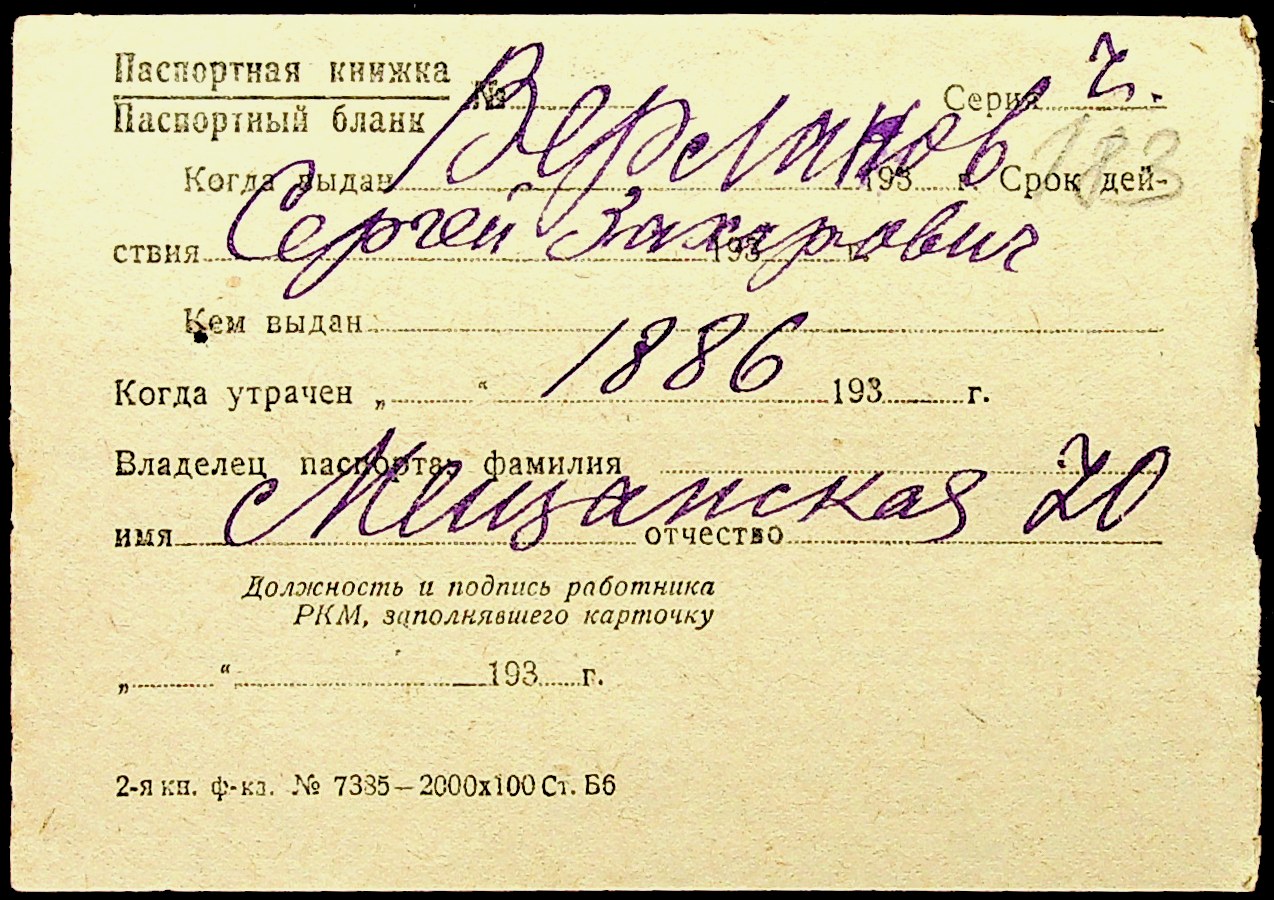 Паспортная книжка
Паспортный бланк № Серия ч.
Верликов
183
Когда выдан 193 г. Срок дей-
Сергей Захарович
ствия 193 г.
Кем выдан
1886
Когда утрачен „ “ 193 г.
Владелец паспорта: фамилия
Мещанская 20
имя отчество
Должность и подпись работника
РКМ, заполнявшего карточку
„ “ 193 г.
2-я кн. ф-ка. № 7385—2000х100 Ст. Б6